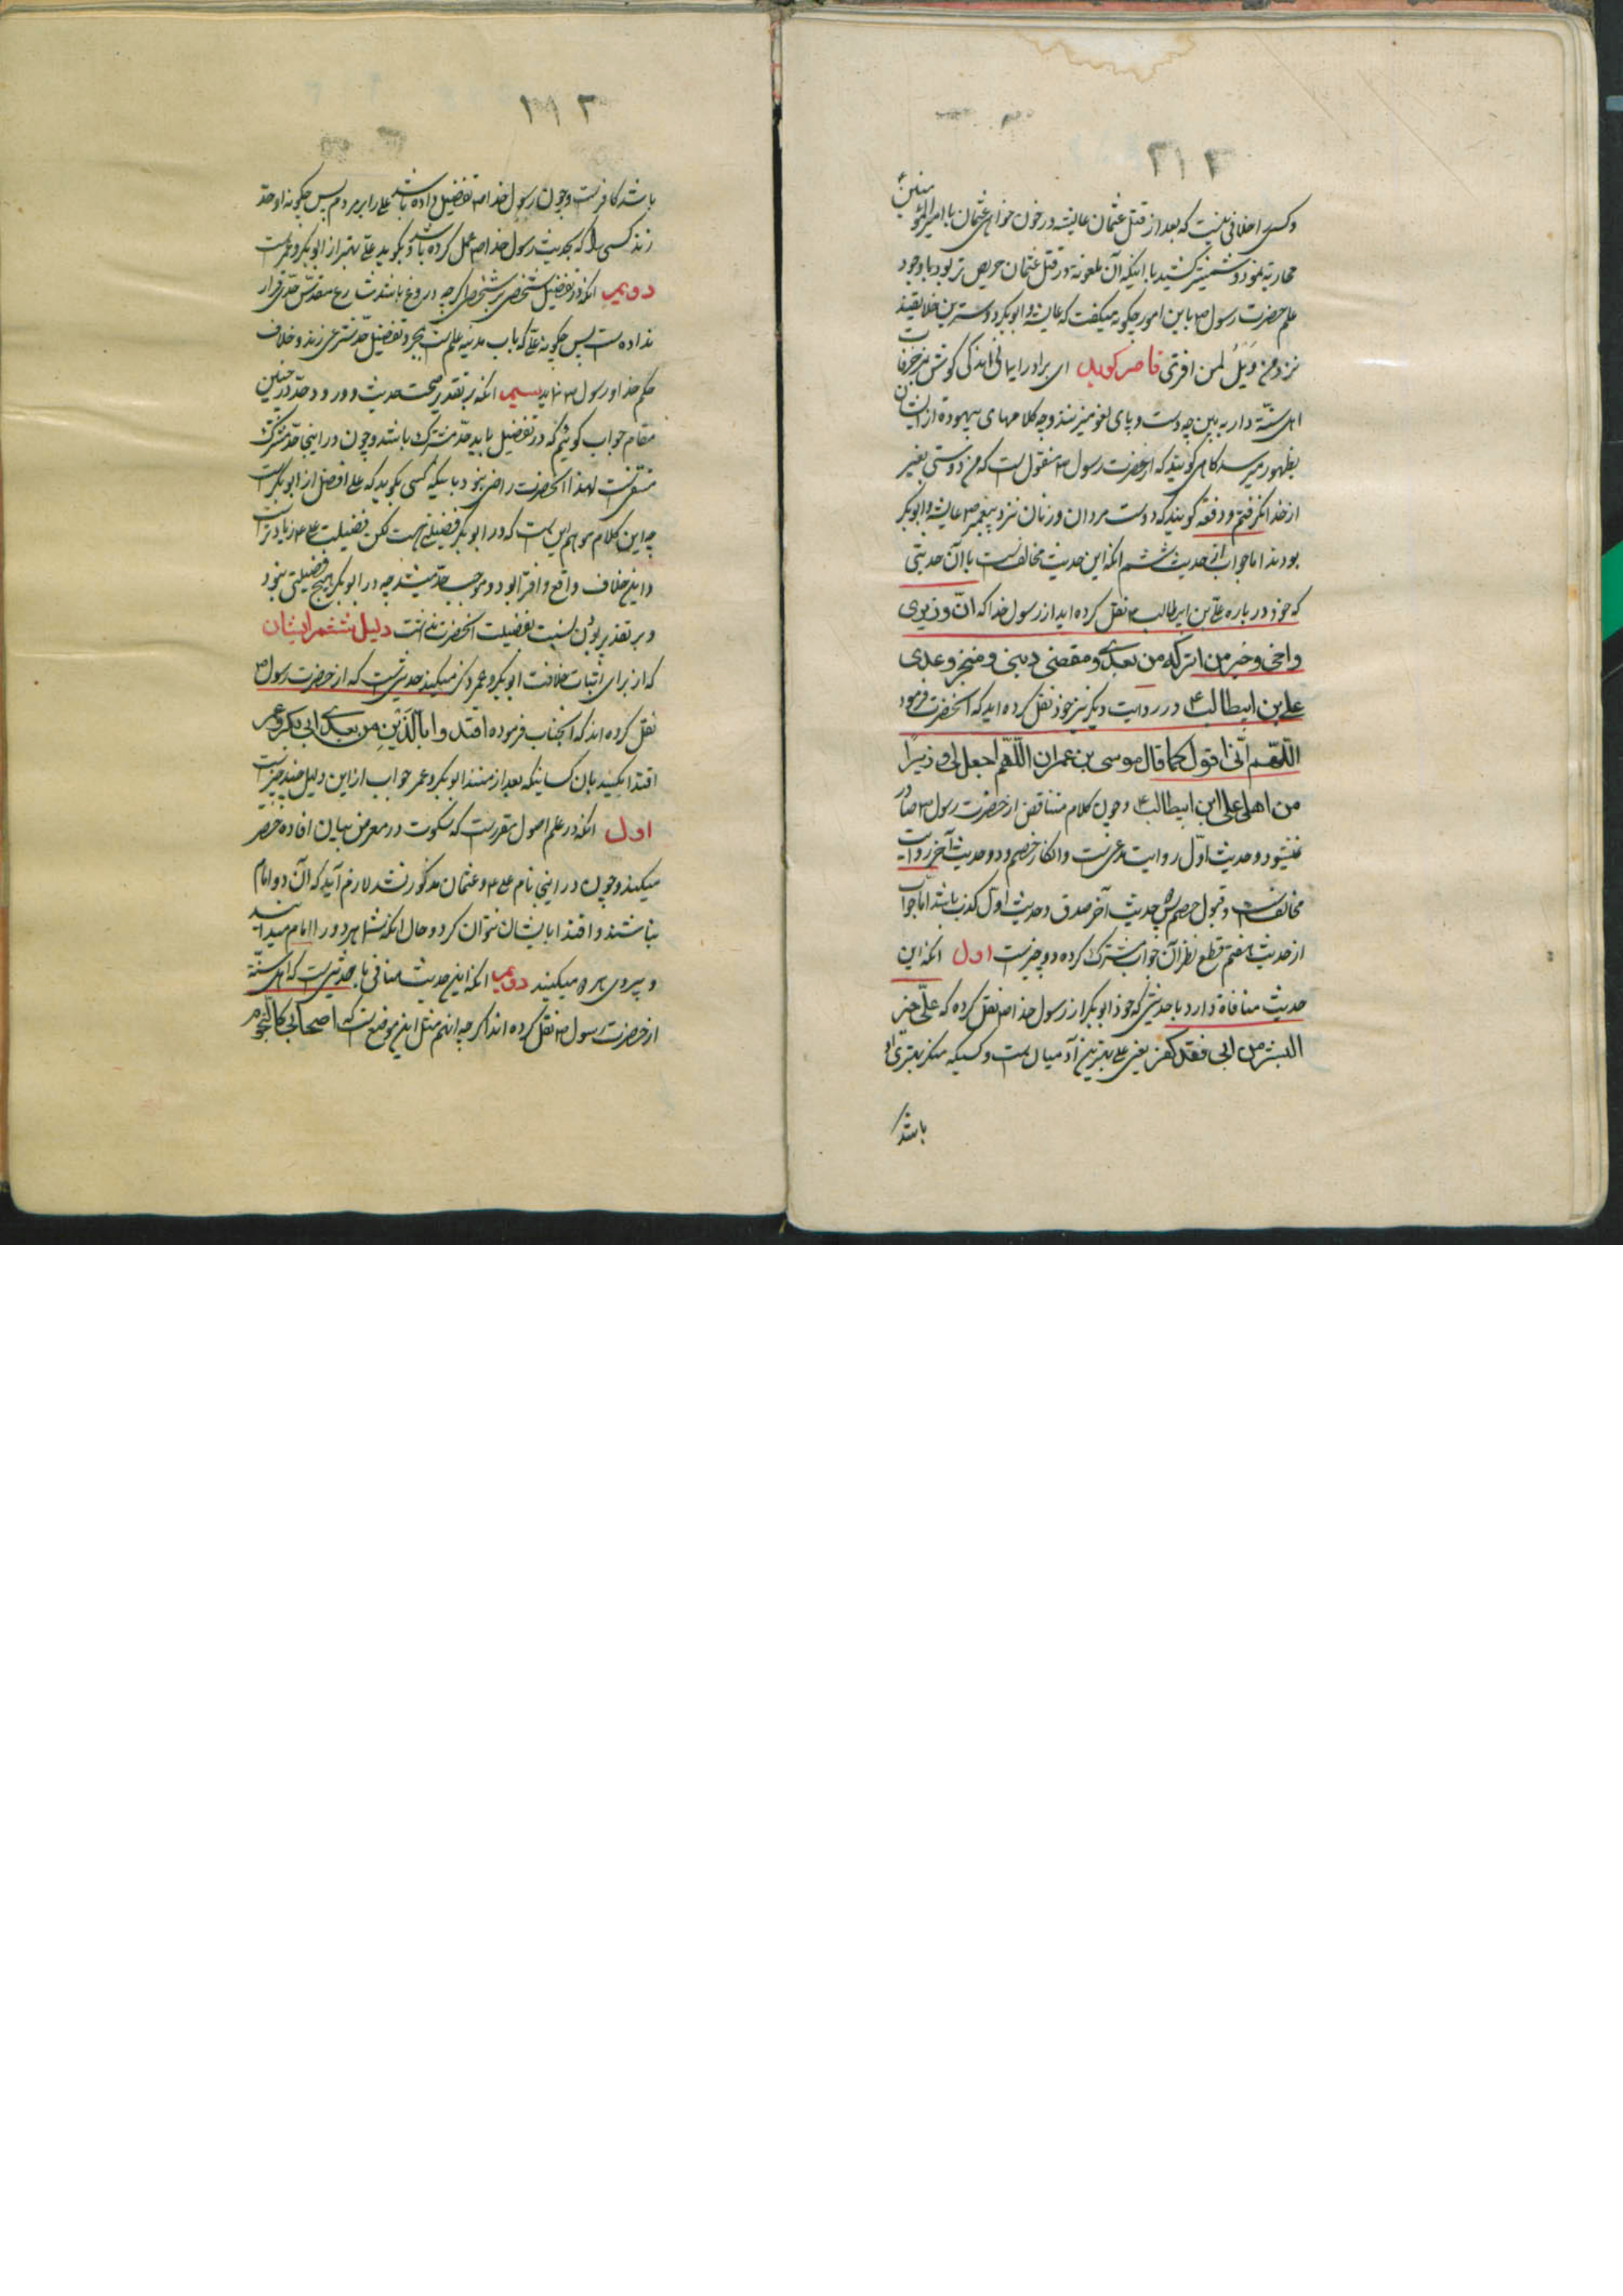 ۳۱۳
وکسی را خلافی نیست که بعد از قتل عثمان عایشه در خون خواهی عثمان با امیرالمؤمنین ع
محاربه نمود و شمشیر کشید با اینکه آن ملعونه در قتل عثمان حریص تر بود با وجود
علم حضرت رسول ص باین امور چگونه میگفت که عایشه و ابوبکر دوسترین خلایقند
نزد من وَیلٌ لمن افتری قاصر کوید ای برادر ایمانی اندکی گوش بمزخرفات
اهل سنّة دار به بین چه دست و پای لغو میزنند و چه کلامهای بیهوده از ایشان
بظهور میرسد کاهی کویند که از حضرت رسول ص منقول است که من دوستی بغیر
از خدا نکرفتم و دفعة کویند که دوست مردان و زنان نزد پیغمبر ص عایشه و ابوبکر
بودند اما جواب از حدیث ششم انکه این حدیث مخالفست با آن حدیثی
که خود در باره علی بن ابیطالب ع نقل کرده اید از رسول خدا که انّ وزیری
واخی و خیر من اترکه من بعدی و مقضی دینی و منجز وعدی
علی بن ابیطالب ع و در روایت دیگر نیز خود نقل کرده اید که انحضرت فرمود
اللّهمّ انّی اقول کما قال موسی بن عمران اللّهمّ اجعل لی وزیراً
من اهلی علی ابن ابیطالب ع و چون کلام متناقض از حضرت رسول ص صادر
نمیشود و حدیث اوّل روایت مدعی است و انکار خصم و دو حدیث آخر روایت
مخالفست و قبول خصم پس حدیث آخر صدق و حدیث اول کذب باشد امّا جواب
از حدیث هفتم قطع نظر از آن جواب مشترک کرده دو چیزست اول انکه این
حدیث منافاة دارد با حدیثی که خود ابوبکر از رسول خدا ص نقل کرده که علیّ خیر
البشر من ابی فقد کفر یعنی علی بهترین آدمیان است و کسیکه منکر بهتری او
باشد
۳۱۳
باشد کافرست و چون رسول خدا ص تفضیل داده باشد علی را بر مردم پس چگونه او حدّ
زند کسی را که بحدیث رسول خدا ص عمل کرده باشد و بگوید علی بهتر از ابوبکر و عمر است
دویم انکه در تفضیل شخصی بر شخصی اگر چه دروغ باشد شارع مقدّس حدّی قرار
نداده است پس چگونه علی که باب مدینه علم است بمجرد تفضیل حدّ شرعی زند و خلاف
حکم خدا و رسول ص نماید سیم انکه بر تقدیر صحت حدیث و ورود حدّ در چنین
مقام جواب گوئیم که در تفضیل باید حدّ مشترک باشد و چون در اینجا حدّ مشترک
منتفیست لهذا انحضرت راضی نبود باینکه کسی بگوید که علی افضل از ابوبکر است
چه این کلام موهم این است که در ابوبکر فضیلتی هست لکن فضیلت علی ع زیادتر است
و این خلاف واقع و افترا بود و موجب حدّ میشد چه در ابوبکر هیچ فضیلتی نبود
و بر تقدیر بودن نسبت بفضیلت انحضرت نداشت دلیل ششم ایشان
که از برای اثبات خلافت ابوبکر و عمر ذکر میکنند حدیثی است که از حضرت رسول ص
نقل کرده اند که انجناب فرموده اقتدوا بالّذین من بعدی ابی بکر و عمر
اقتدا بکنید بان کسانیکه بعد از منند ابوبکر و عمر جواب از این دلیل چند چیز است
اول انکه در علم اصول مقررست که سکوت در معرض بیان افاده حصر
میکند و چون در اینجا نام علی ع و عثمان مذکور نشد لازم آید که آن دو امام
نباشند و اقتدا بایشان نتوان کرد و حال انکه شما هر دو را امام میدانید
و پیروی هر دو میکنید دویم انکه این حدیث منافی با حدیثی است که اهل سنّة
از حضرت رسول ص نقل کرده اند اگر چه انهم مثل این موضوع است که اصحابی کالنّجوم